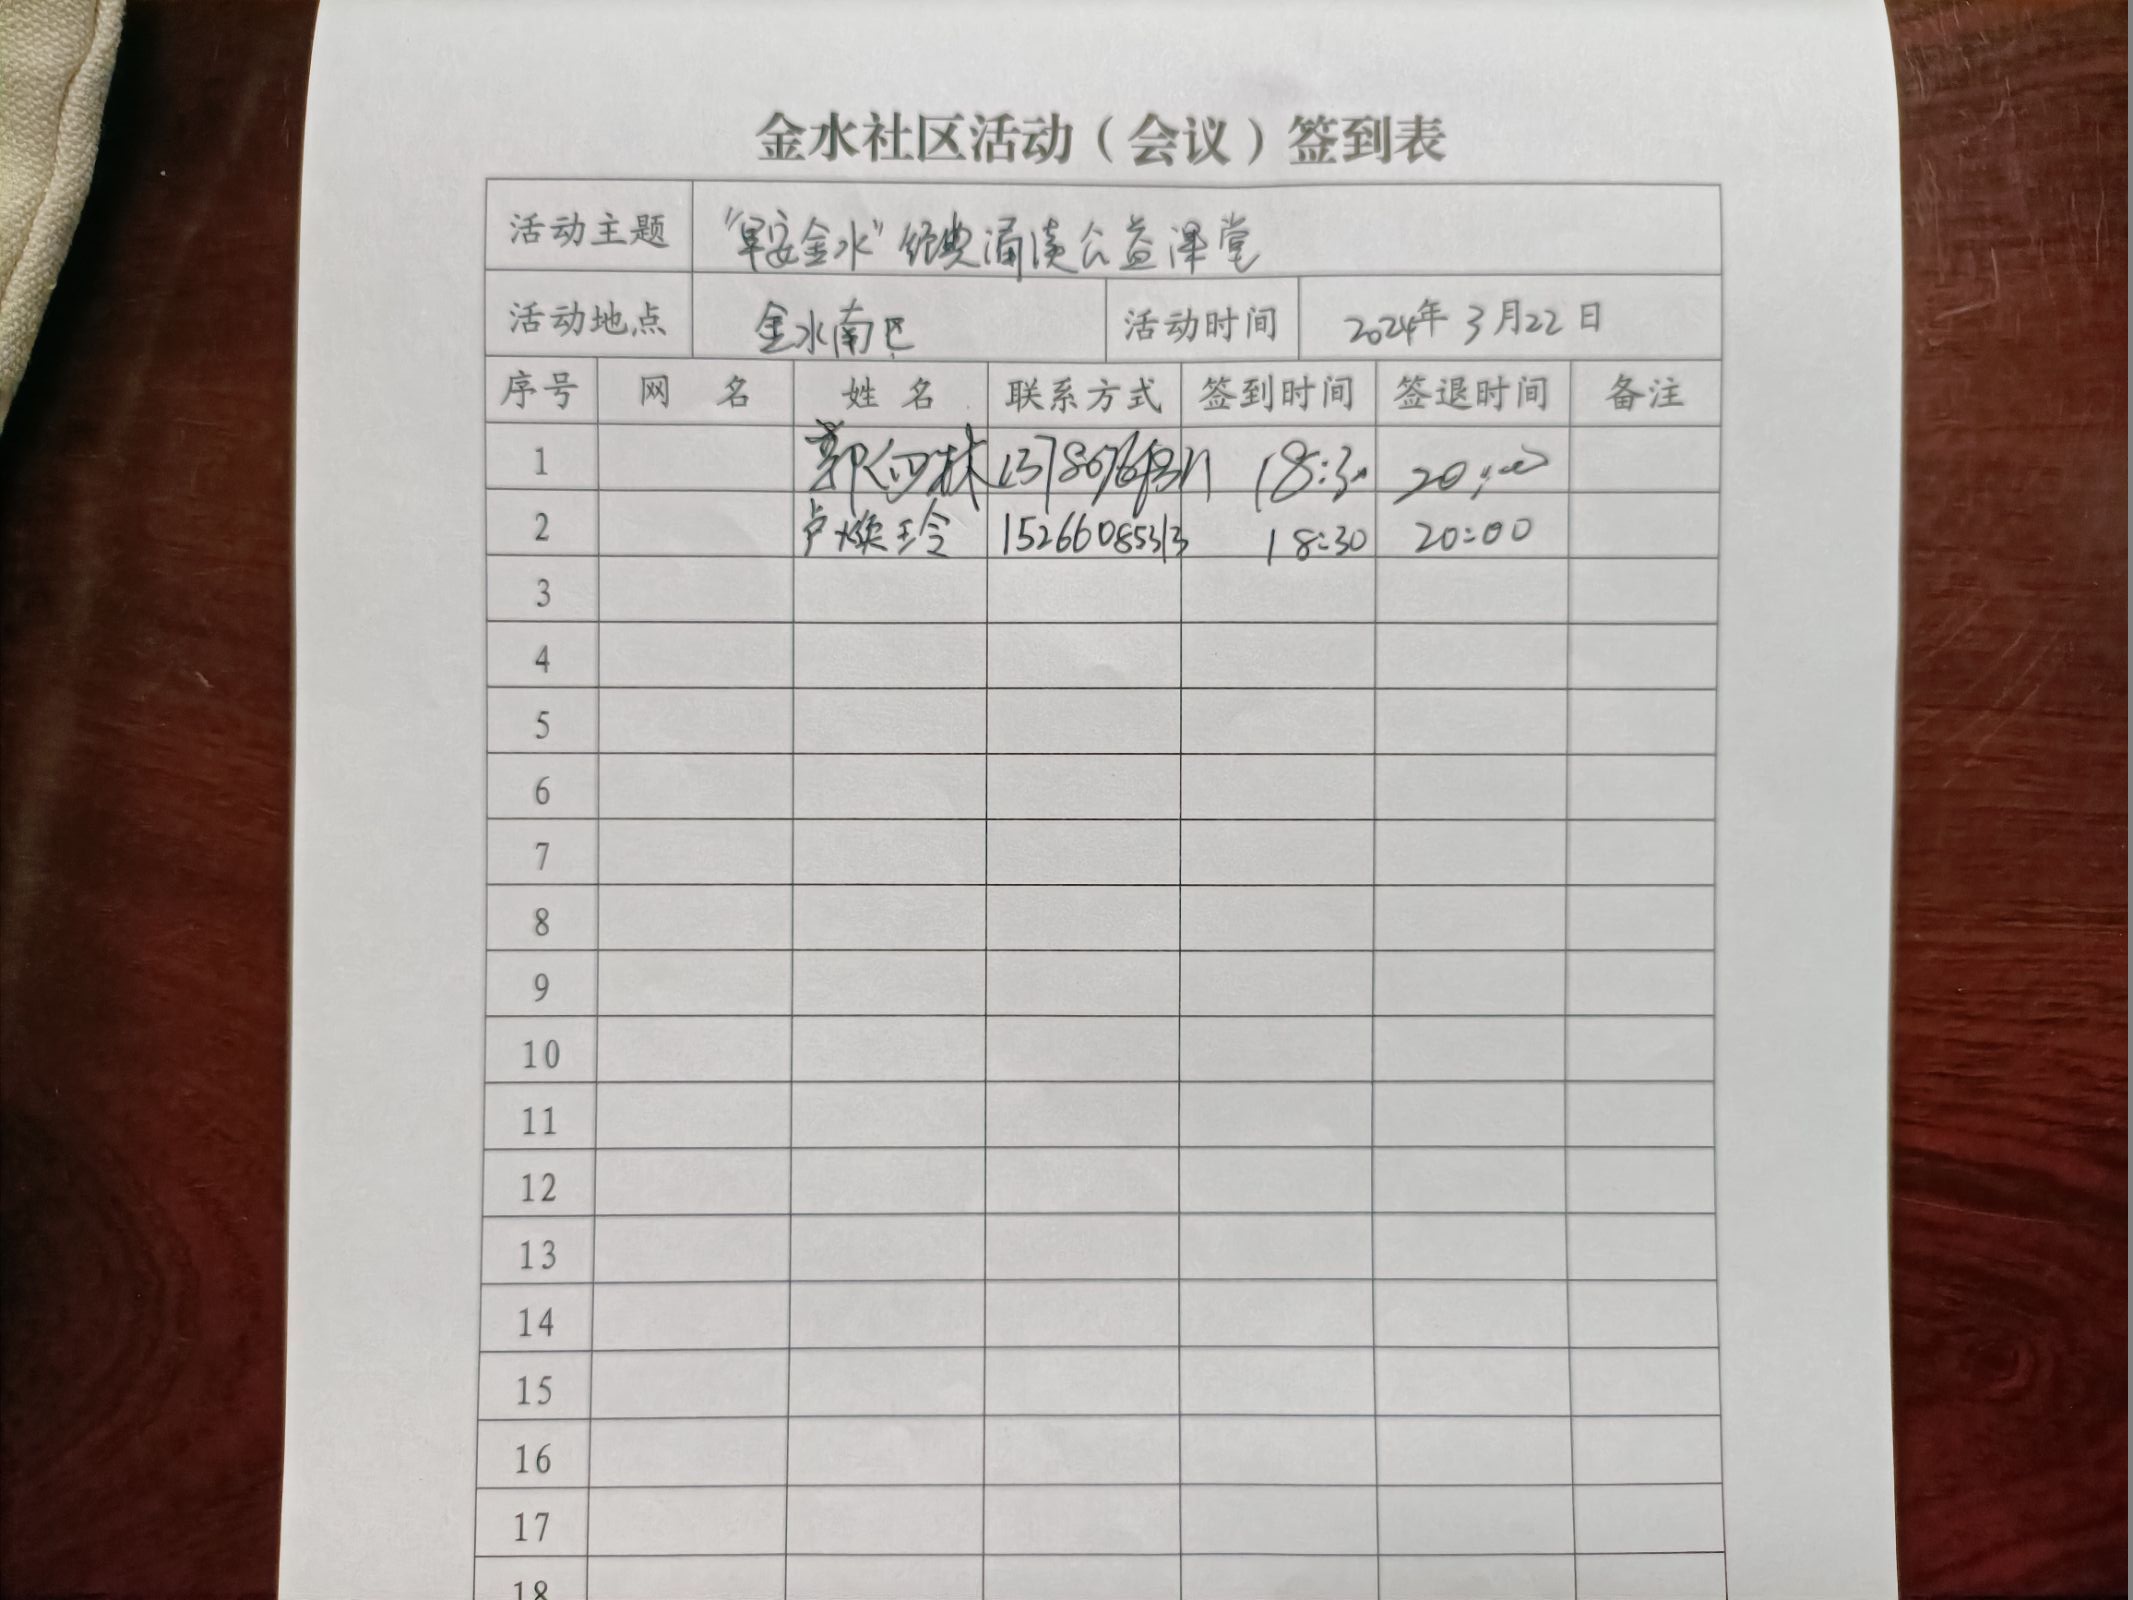 金水社区活动（会议）签到表
活动主题 "早安金水"经典诵读公益课堂
活动地点 金水南区 活动时间 2024年3月22日
序号 网 名 姓 名 联系方式 签到时间 签退时间 备注
1 郭 林 18:30 20:00
2 卢焕玲 15266085313 18:30 20:00
3
4
5
6
7
8
9
10
11
12
13
14
15
16
17
18